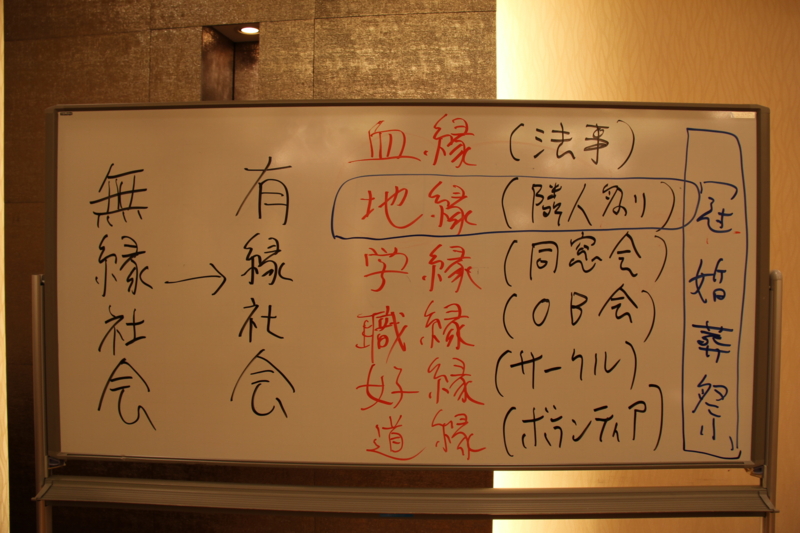 無縁社会
→
有縁社会
血縁 (法事)
地縁 (隣人祭り)
学縁 (同窓会)
職縁 (OB会)
好縁 (サークル)
道縁 (ボランティア)
冠婚葬祭